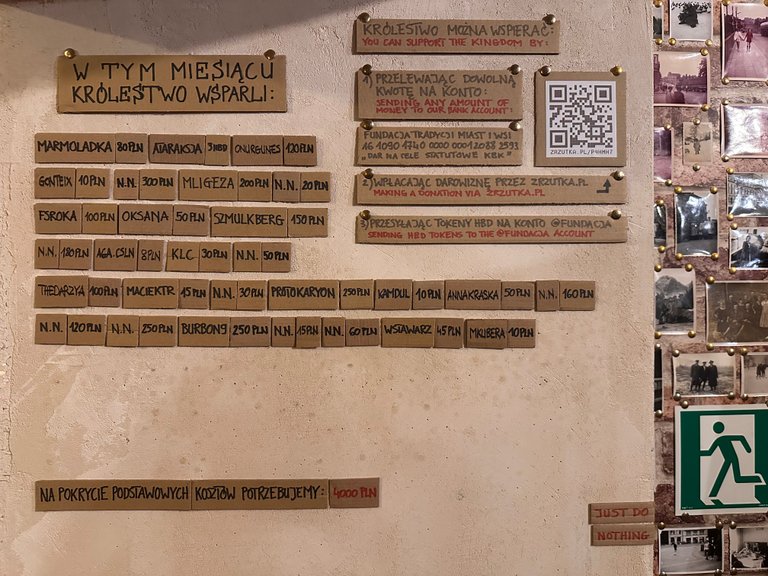 W TYM MIESIĄCU
KRÓLESTWO WSPARLI:
MARMOLADKA 80 PLN ATARAKSJA 3 HBD ONURGUNES 120 PLN
GONTEIX 10 PLN N.N. 300 PLN MLIGEZA 200 PLN N.N. 20 PLN
FSROKA 100 PLN OKSANA 50 PLN SZMULKBERG 150 PLN
N.N. 180 PLN AGA.CSLN 8 PLN KLC 30 PLN N.N. 50 PLN
THEDARZYA 100 PLN MACIEKTR 15 PLN N.N. 30 PLN PROTOKARYON 250 PLN KAMDUL 10 PLN ANNAKRASKA 50 PLN N.N. 160 PLN
N.N. 120 PLN N.N. 250 PLN BURBON9 250 PLN N.N. 15 PLN N.N. 60 PLN WSTAWARZ 45 PLN MKUBERA 10 PLN
NA POKRYCIE PODSTAWOWYCH KOSZTÓW POTRZEBUJEMY: 4000 PLN
KRÓLESTWO MOŻNA WSPIERAĆ:
YOU CAN SUPPORT THE KINGDOM BY:
1) PRZELEWAJĄC DOWOLNĄ
KWOTĘ NA KONTO:
SENDING ANY AMOUNT OF
MONEY TO OUR BANK ACCOUNT:
FUNDACJA TRADYCJI MIAST I WSI
16 1090 1740 0000 0001 2088 2593
„DAR NA CELE STATUTOWE KBK"
ZRZUTKA.PL/P4HMH7
2) WPŁACAJĄC DAROWIZNĘ PRZEZ ZRZUTKA.PL
MAKING A DONATION VIA ZRZUTKA.PL
3) PRZESYŁAJĄC TOKENY HBD NA KONTO @FUNDACJA
SENDING HBD TOKENS TO THE @FUNDACJA ACCOUNT
JUST DO
NOTHING